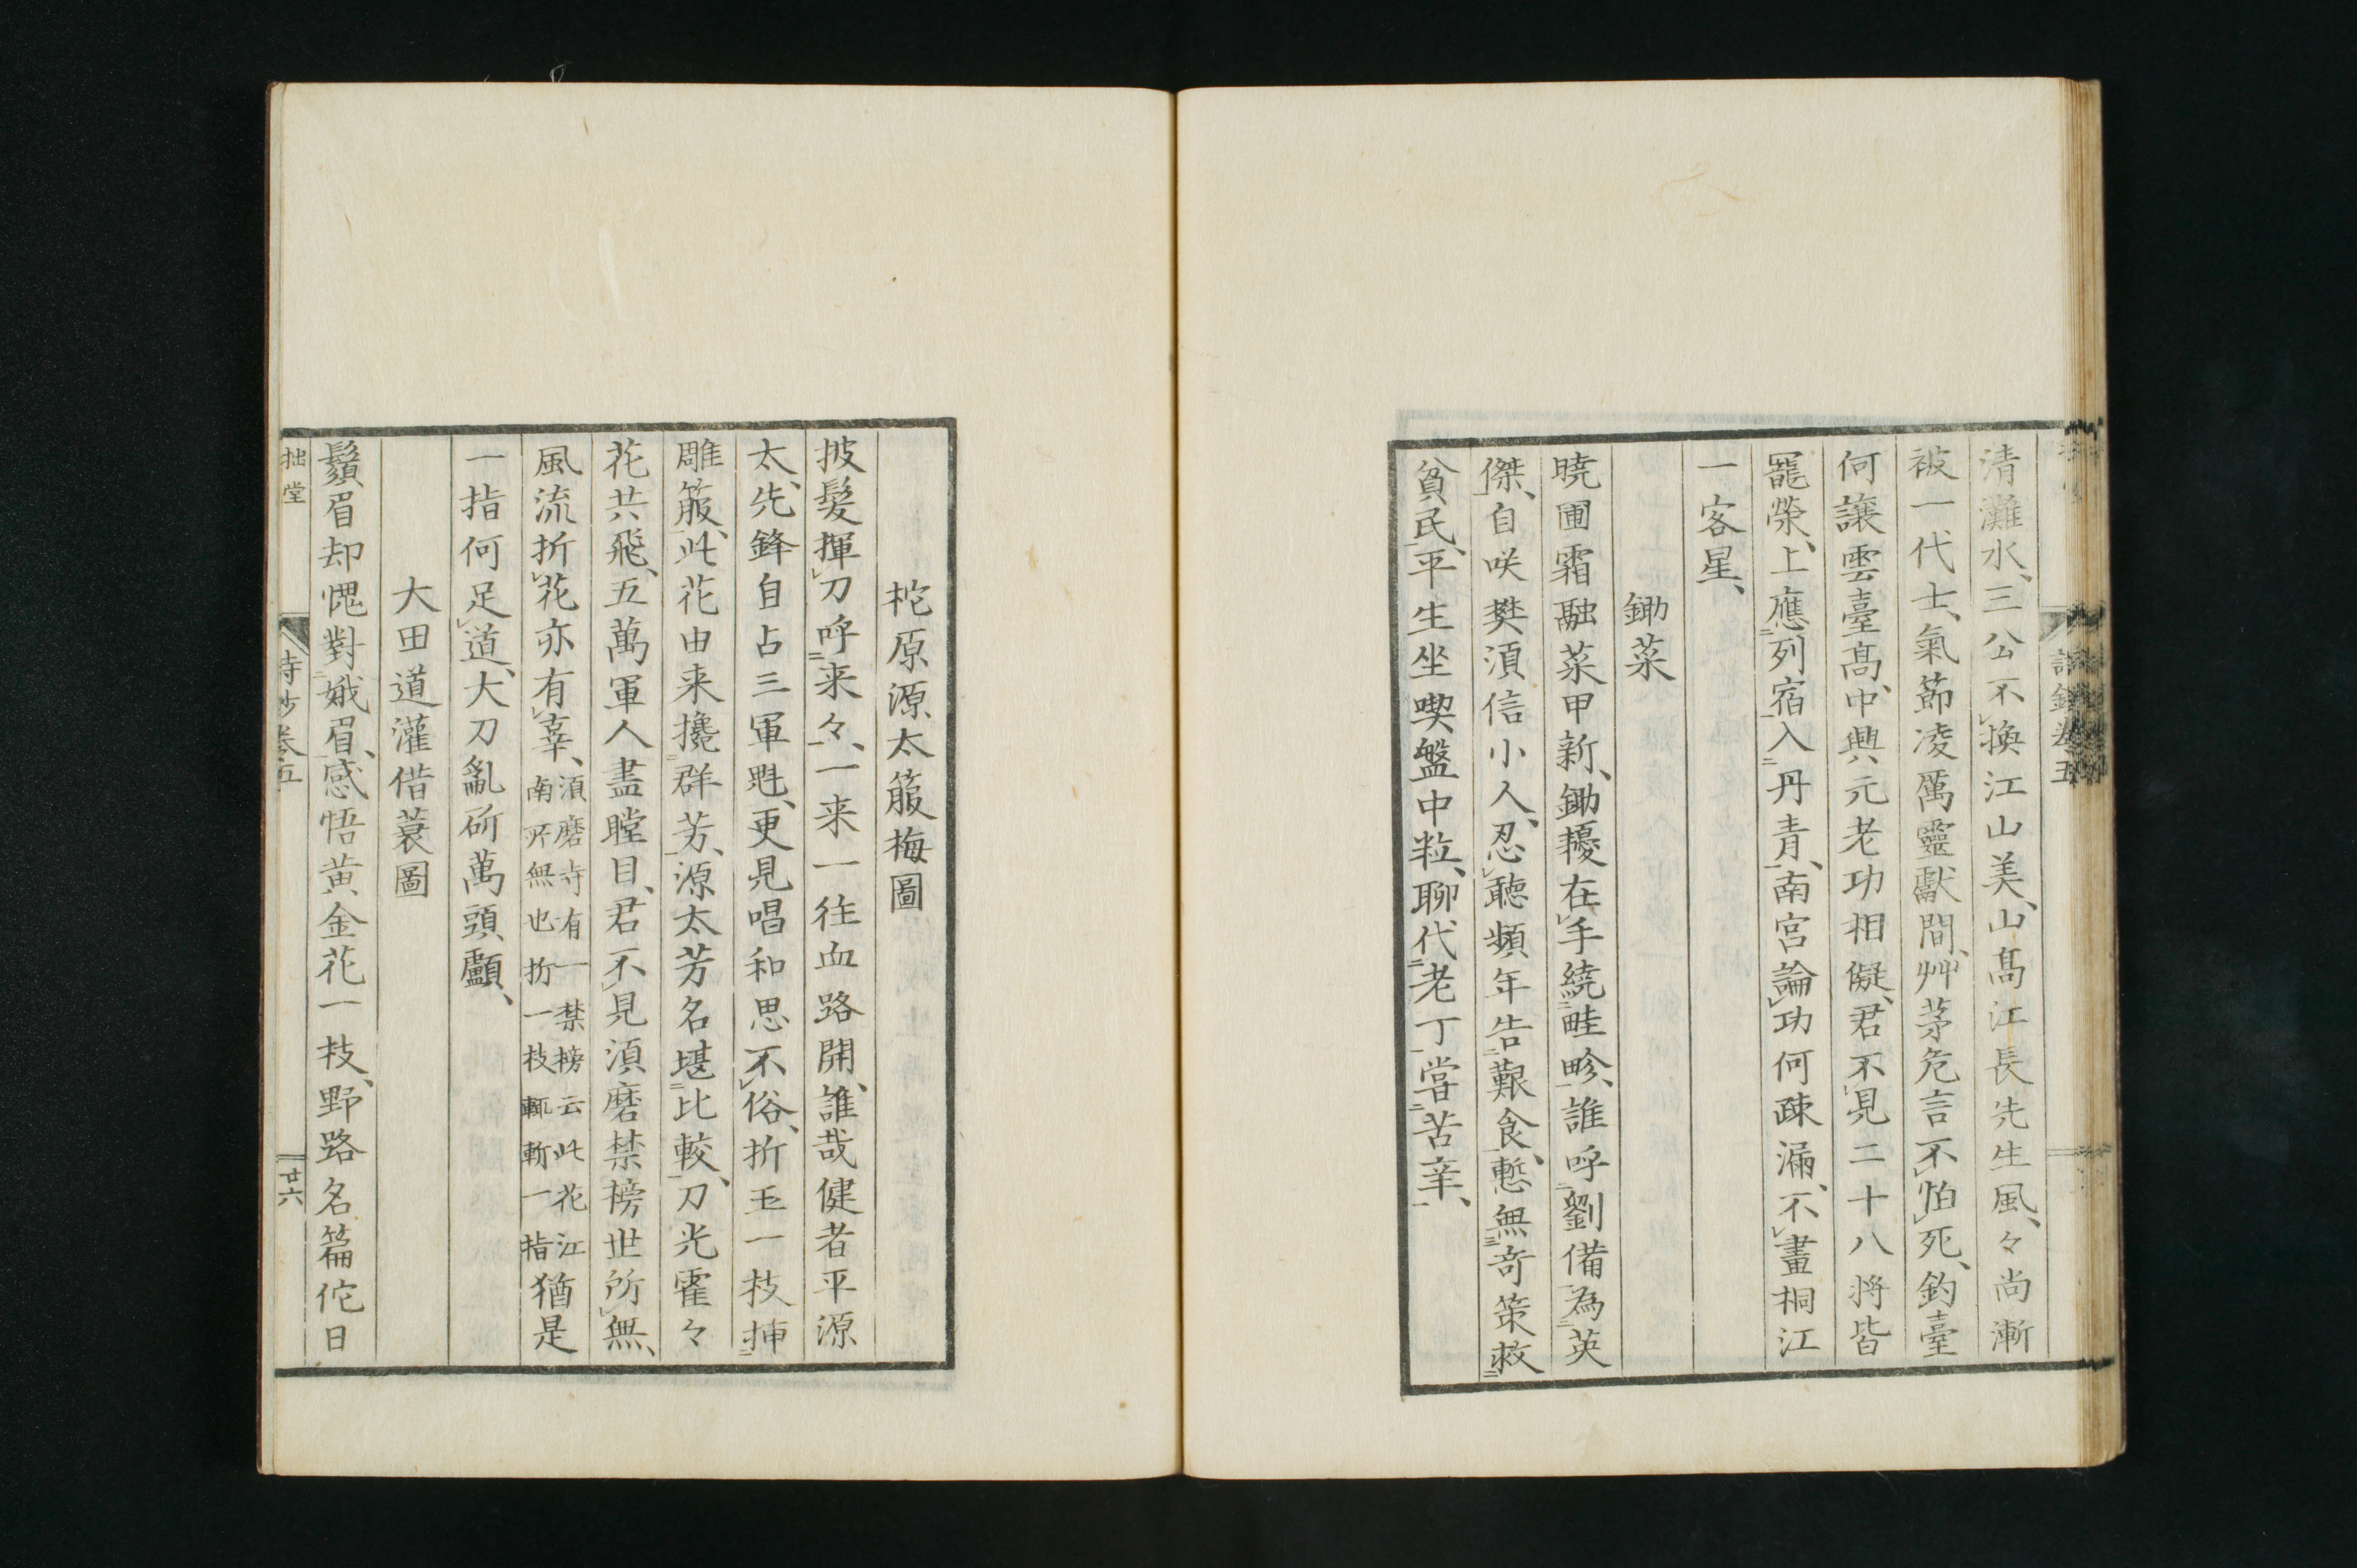 清灘水、三公不換江山美、山髙江長先生風、々尚漸
被一代士、氣節凌厲靈獻間、艸茅危言不怕死、釣臺
何讓雲臺髙、中興元老功相儗、君不見二十八將皆
罷榮、上應列宿入丹青、南宮論功何疎漏、不畫桐江
一客星、
鋤菜
曉圃霜融菜甲新、鋤耰在手繞畦畛、誰呼劉備為英
傑、自咲樊須信小人、忍聴頻年告艱食、慙無奇策救
貧民、平生坐喫盤中粒、聊代老丁嘗苦辛、
詩鈔卷五
梶原源太箙梅圖
披髮揮刀呼来々、一来一往血路開、誰哉健者平源
太、先鋒自占三軍魁、更見唱和思不俗、折玉一枝挿
雕箙、此花由来攙群芳、源太芳名堪比較、刀光霍々
花共飛、五萬軍人盡瞠目、君不見須磨禁榜世所無、
風流折花亦有辜、須磨寺有一禁榜云此花江
南所無也折一枝輒斬一指猶是
一指何足道、大刀亂斫萬頭顱、
大田道灌借蓑圖
鬚眉却愧對娥眉、感悟黄金花一枝、野路名篇佗日
拙堂
詩鈔卷五
廿六